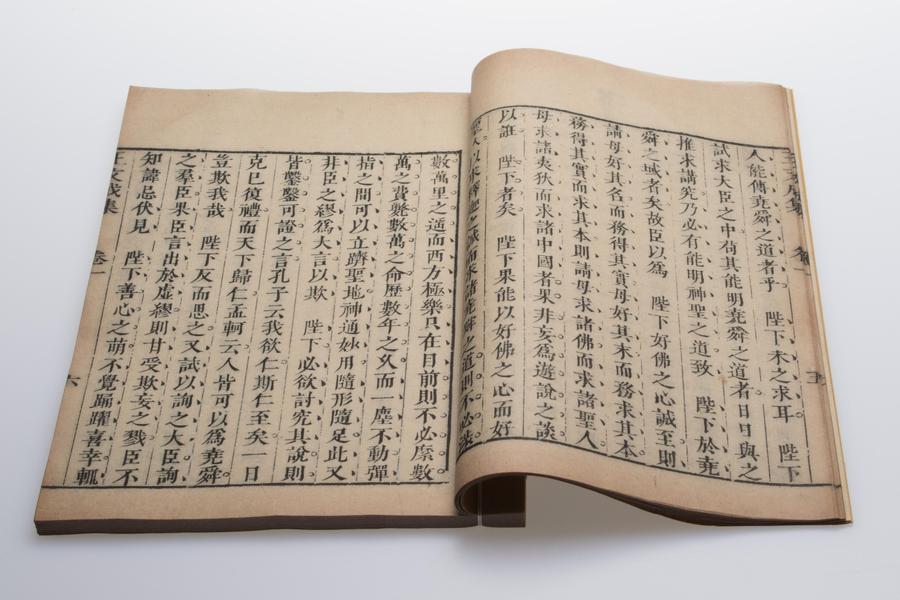 人能傳堯舜之道者乎　陛下未之求耳　陛下
試求大臣之中苟其能明堯舜之道者日日與之
推求講究乃必有能明神聖之道致　陛下於堯
舜之域者矣故臣以爲　陛下好佛之心誠至則
請毋好其名而務得其實毋好其末而務求其本
務得其實而求其本則請毋求諸佛而求諸聖人
毋求諸夷狄而求諸中國者果非妄爲遊說之談
以誑　陛下者矣　陛下果能以好佛之心而好
聖人以求釋迦之誠而求諸堯舜之道則不必涉
數萬里之遙而西方極樂只在目前則不必縻數
萬之費斃數萬之命歷數年之久而一塵不動彈
指之間可以立躋聖地神通妙用隨形隨足此又
非臣之繆爲大言以欺　陛下必欲討究其說則
皆鑿鑿可證之言孔子云我欲仁斯仁至矣一日
克己復禮而天下歸仁孟軻云人皆可以爲堯舜
豈欺我哉　陛下反而思之又試以詢之大臣詢
之羣臣果臣言出於虛繆則甘受欺妄之戮臣不
知諱忌伏見　陛下善心之萌不覺踴躍喜幸輒
王文成集　卷一　六